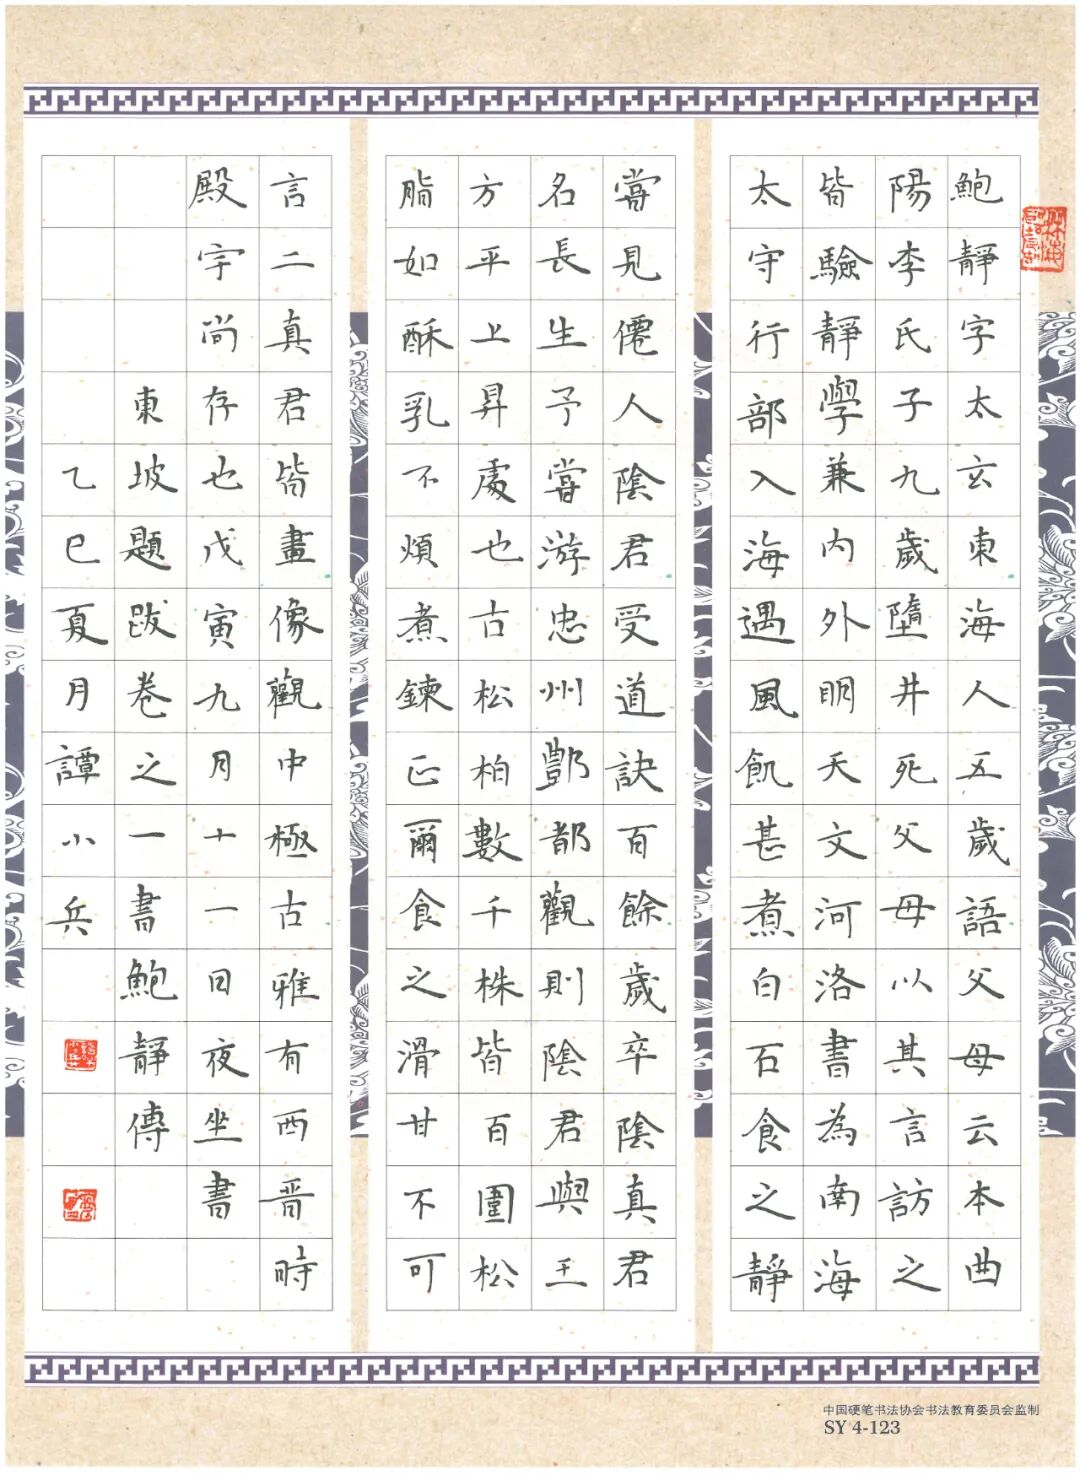 鮑靜字太玄東海人五歲語父母云本曲
陽李氏子九歲墮井死父母以其言訪之
皆驗靜學兼內外明天文河洛書為南海
太守行部入海遇風飢甚煮白石食之靜
嘗見僊人陰君受道訣百餘歲卒陰真君
名長生予嘗游忠州酆都觀則陰君與王
方平上昇處也古松柏數千株皆百圍松
脂如酥乳不煩煮鍊正爾食之滑甘不可
言二真君皆畫像觀中極古雅有西晉時
殿宇尚存也戊寅九月十一日夜坐書
東坡題跋卷之一書鮑靜傳
乙巳夏月譚小兵
中国硬笔书法协会书法教育委员会监制
SY 4-123